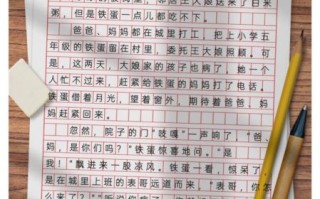 粥，但是铁蛋一点儿都吃不下。
爸爸，妈妈都在城里打工，把上小学五
年级的铁蛋留在村里，委托王大娘照顾。可
是，这两天，大娘家的孩子也病了，她一个
人忙不过来，赶紧给铁蛋的妈妈打了电话。
铁蛋借着月光，望着窗外，期待着爸爸，妈
妈赶紧回来。
忽然，院子的门“吱嘎”一声响了，“爸，
妈，是你们吗？”铁蛋惊喜地问。“是
我！”飘进来一股凉风。铁蛋一看，惊呆了，
是在城里上班的表哥远道而来，“表哥，你怎
么来了？”